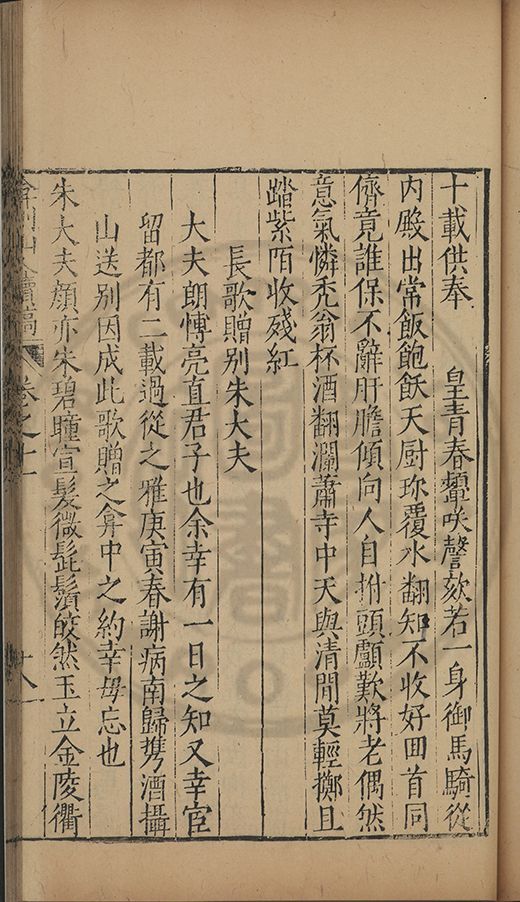 十載供奉　皇青春顰咲謦欬若一身御馬騎從
內殿出常飯飽飫天厨珎覆水翻知不收好回首同
儕竟誰保不辭肝膽傾向人自拊頭顱歎將老偶然
意氣憐禿翁杯酒翻瀾蕭寺中天與清閒莫輕擲且
踏紫陌收殘紅
長歌贈別朱大夫
大夫朗愽亮直君子也余幸有一日之知又幸宦
留都有二載過從之雅庚寅春謝病南歸携酒攝
山送別因成此歌贈之弇中之約幸毋忘也
朱大夫顏亦朱碧瞳宣髮微髭鬚皎然玉立金陵衢
弇州山人續稿　卷之十一　十八